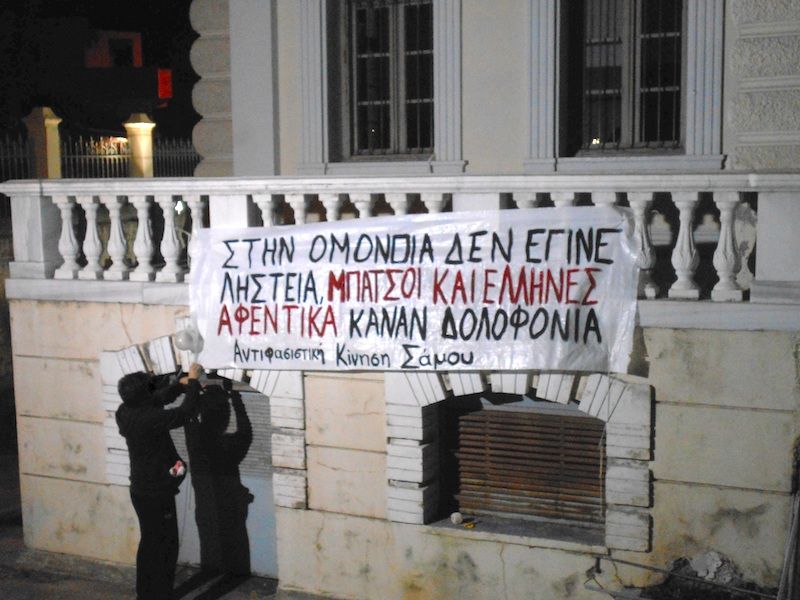 ΣΤΗΝ ΟΜΟΝΟΙΑ ΔΕΝ ΕΓΙΝΕ
ΛΗΣΤΕΙΑ, ΜΠΑΤΣΟΙ ΚΑΙ ΕΛΛΗΝΕΣ
ΑΦΕΝΤΙΚΑ ΚΑΝΑΝ ΔΟΛΟΦΟΝΙΑ
Αντιφασιστική Κίνηση Σάμου